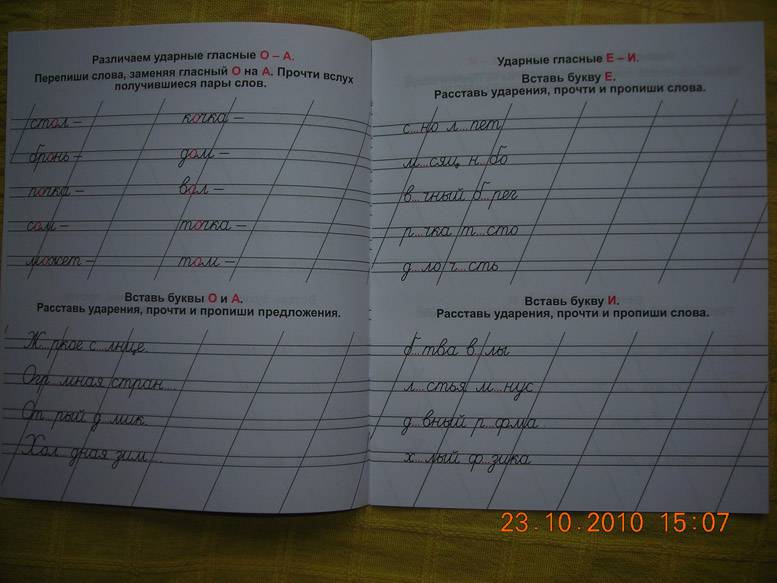 Различаем ударные гласные О – А.
Перепиши слова, заменяя гласный О на А. Прочти вслух
получившиеся пары слов.
стол – кочка –
бронь – дом –
почка – вол –
сом – точка –
может – том –
Вставь буквы О и А.
Расставь ударения, прочти и пропиши предложения.
Ж...ркое с...лнце.
Огр...мная стран...
Ст...рый д...мик.
Хол...дная зим...
Ударные гласные Е – И.
Вставь букву Е.
Расставь ударения, прочти и пропиши слова.
с...но л...пет
м...сяц н...бо
в...чный б...рег
р...чка т...сто
д...ло ч...сть
Вставь букву И.
Расставь ударения, прочти и пропиши слова.
б...тва в...лы
л...стья м...нус
д...вный р...фма
х...лый ф...зика
23.10.2010 15:07